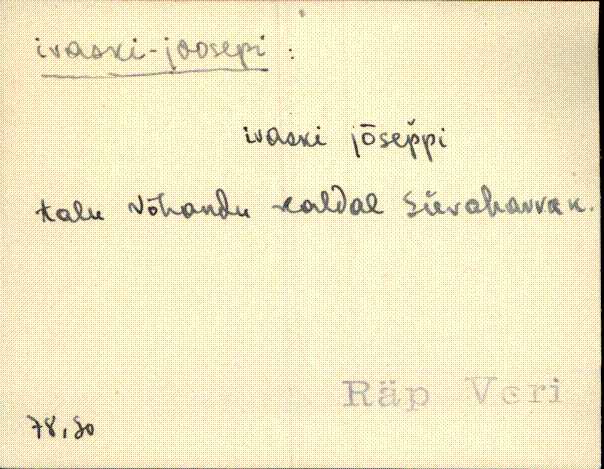 ivaski-joosepi :
ivaski jōsep̆pi
talu Võhandu kaldal Süvahavvan.
Räp Veri
78,80